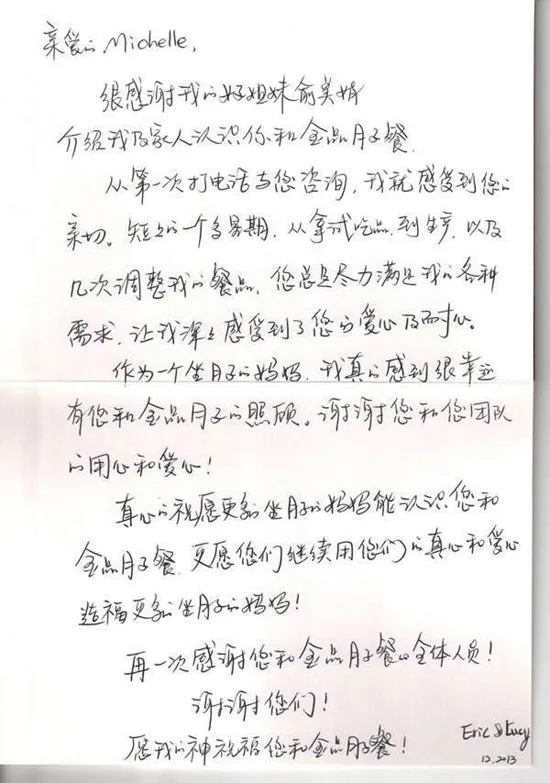 亲爱的 Michelle,
很感谢我的好姐妹俞美娟
介绍我及家人认识你和金品月子餐.
从第一次打电话与您咨询,我就感受到您的
亲切。短短的一个多星期,从拿试吃品,到生产,以及
几次调整我的餐品,您总是尽力满足我的各种
需求,让我深深感受到了您的爱心及耐心。
作为一个坐月子的妈妈,我真的感到很幸运
有您和金品月子的照顾。谢谢您和您团队
的用心和爱心!
真心的祝愿更多的坐月子的妈妈能认识您和
金品月子餐.更愿您们继续用您们的真心和爱心
造福更多的坐月子的妈妈!
再一次感谢您和金品月子餐的全体人员!
谢谢您们!
愿我的神祝福您和金品月子餐!
Eric & Lucy
12.2013